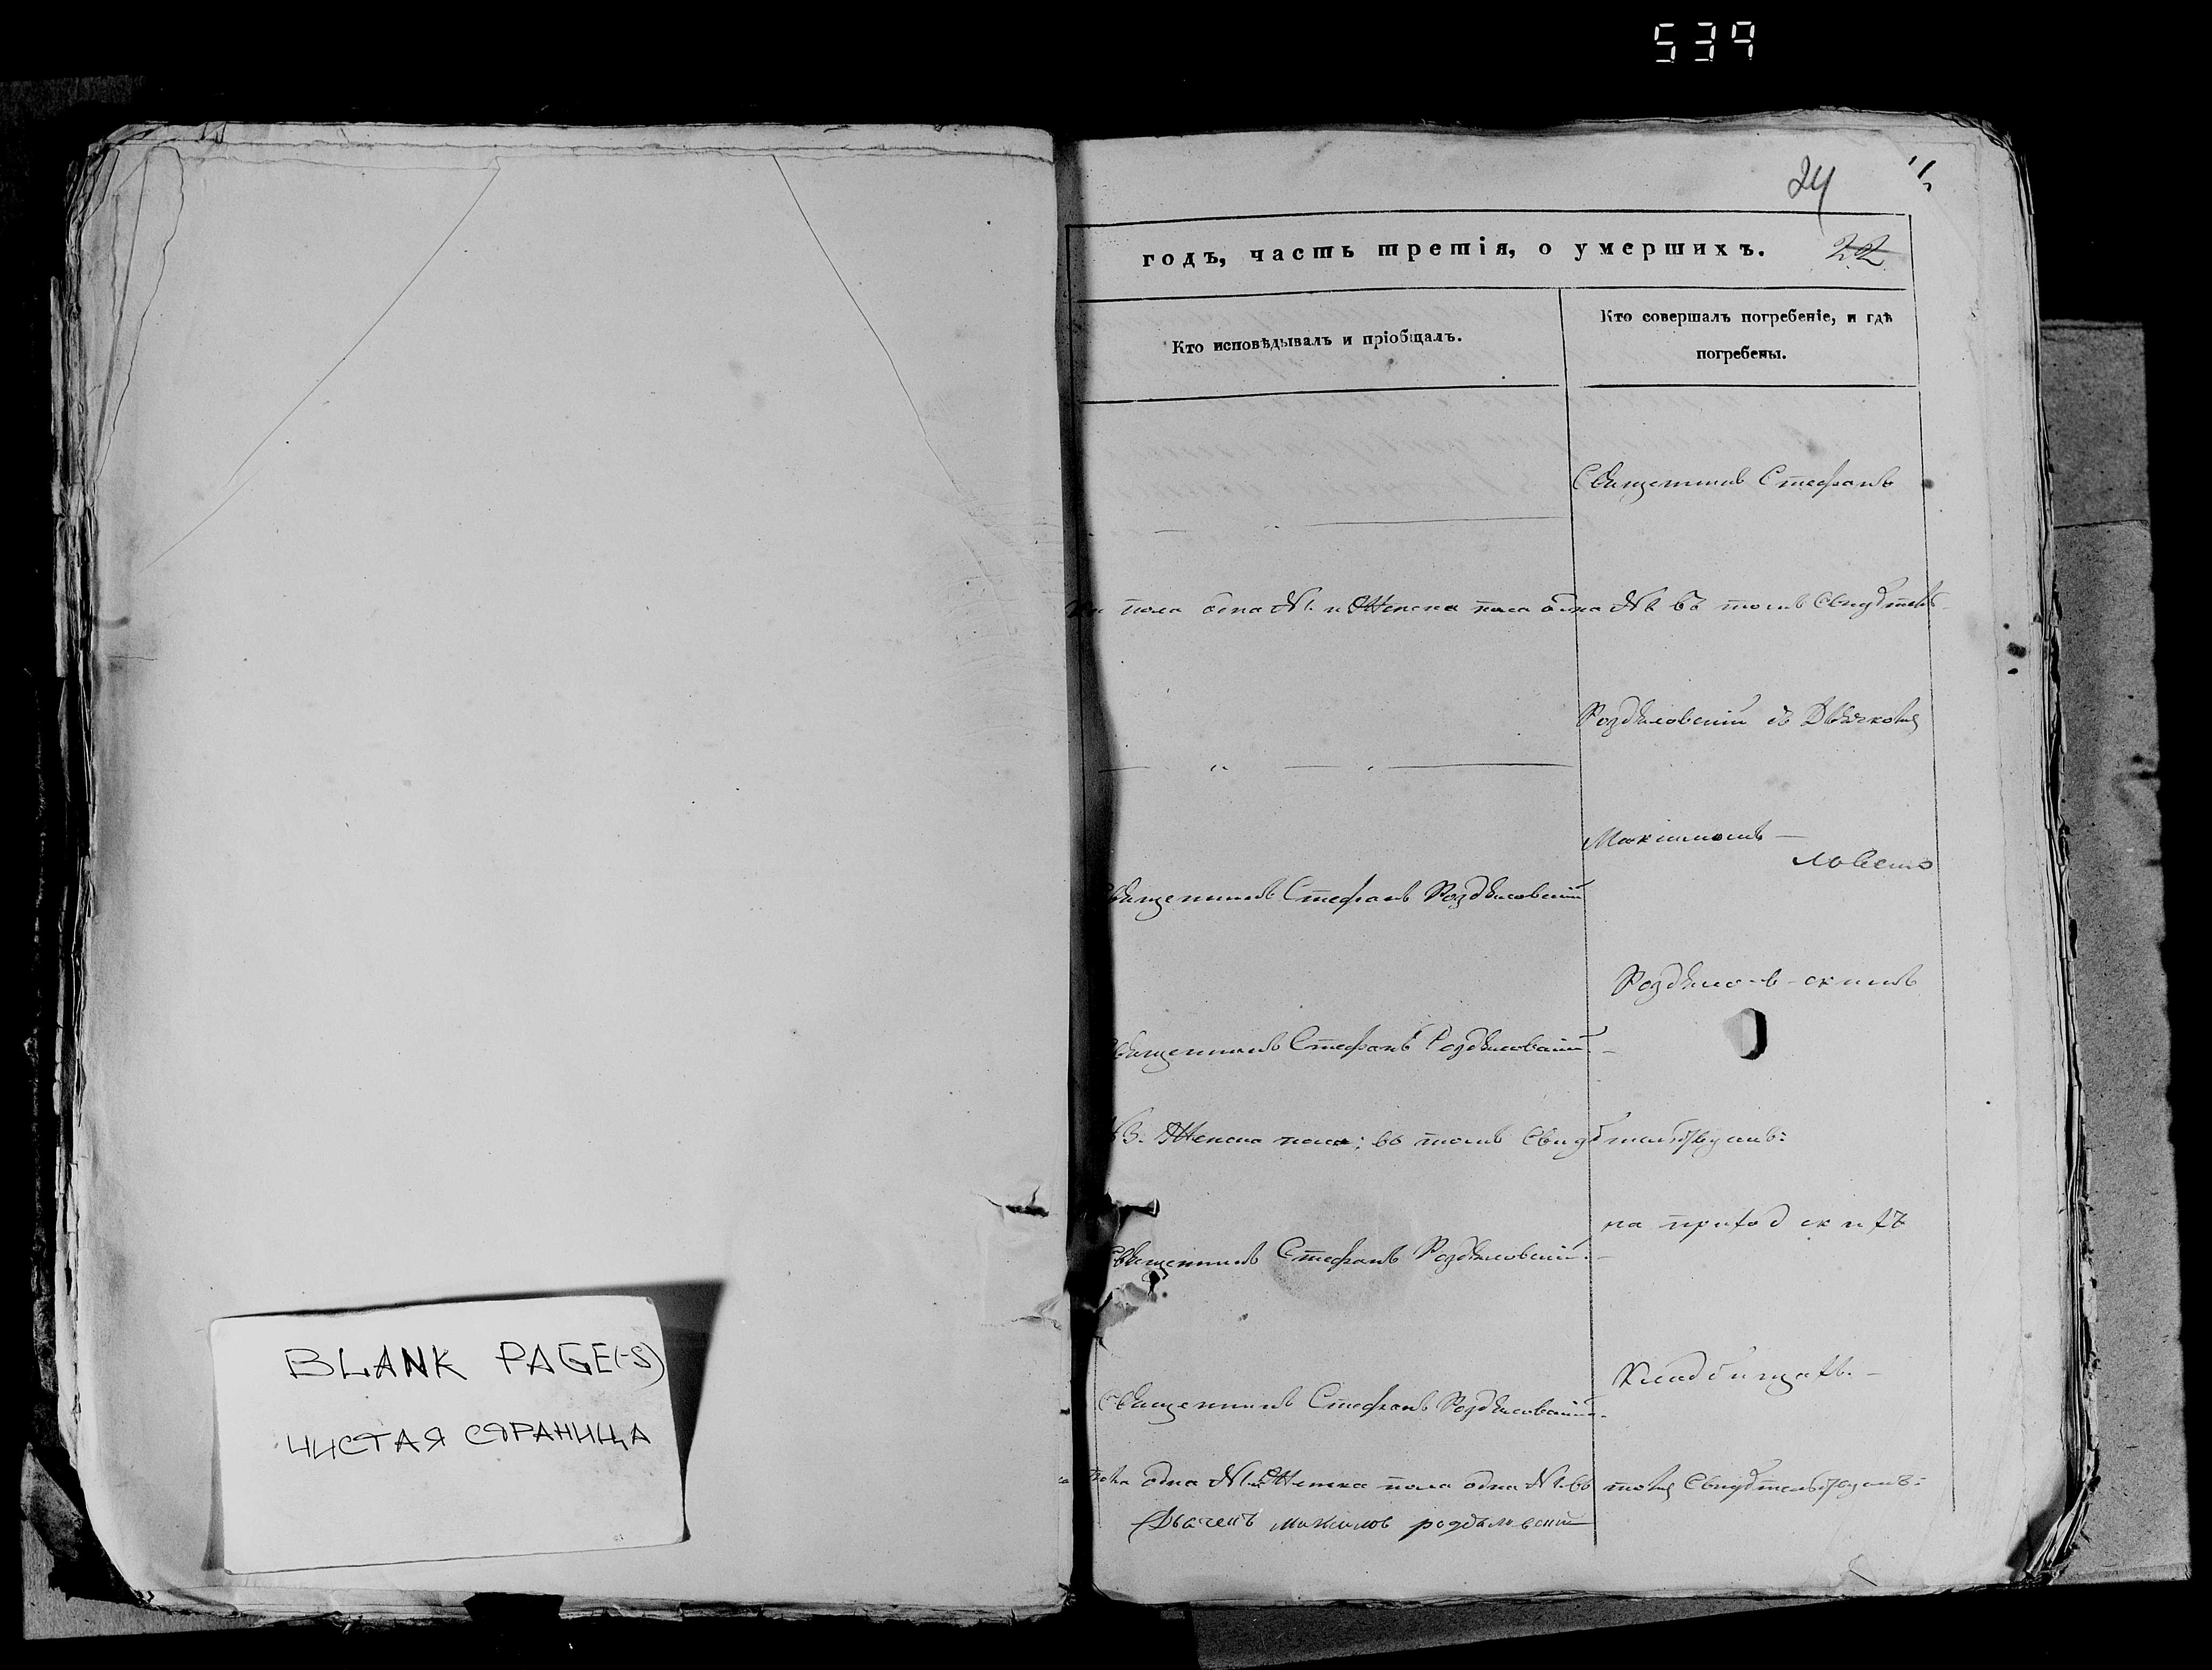 539
24
годъ, часть третія, о умершихъ. 22
Кто исповѣдывалъ и пріобщалъ.
Кто совершалъ погребеніе, и гдѣ
погребены.
Священникъ Стефанъ
пола одна №1. и Женска пола одна №1 въ томъ
Роздѣловскій съ Дьячкомъ
Максимомъ —
ловско
Священникъ Стефанъ Роздѣловскій
Роздѣло-в-скимъ
Священникъ Стефанъ Роздѣловскій. —
№3. Женска пола: въ томъ Свидѣтельствуемъ:
на приход скихъ
Священникъ Стефанъ Роздѣловскій. —
Кладбищахъ. —
Священникъ Стефанъ Роздѣловскій.
пола одна №1. и Женска пола одна №1. въ томъ Свидѣтельствуемъ:
Дьячекъ Роздѣловскій
BLANK PAGE(-S)
ЧИСТАЯ СТРАНИЦА